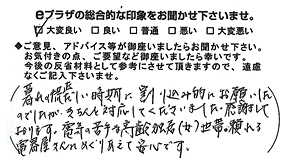 eプラザの総合的な印象をお聞かせ下さいませ。
☑大変良い □良い □普通 □悪い □大変悪い
◆ご意見、アドバイス等が御座いましたらお聞かせ下さい。
お気付きの点、ご要望など御座いましたら幸いです。
今後の反省材料として参考にさせて頂きますので、遠慮
なくご記入下さいませ。
暮れの慌しい時期に割り込み的にお願いした
のでしたが、きちんと対応してくださいました。感謝して
おります。電気の苦手な高齢独居(女)世帯、頼れる
電器屋さんにめぐりあえて安心です。